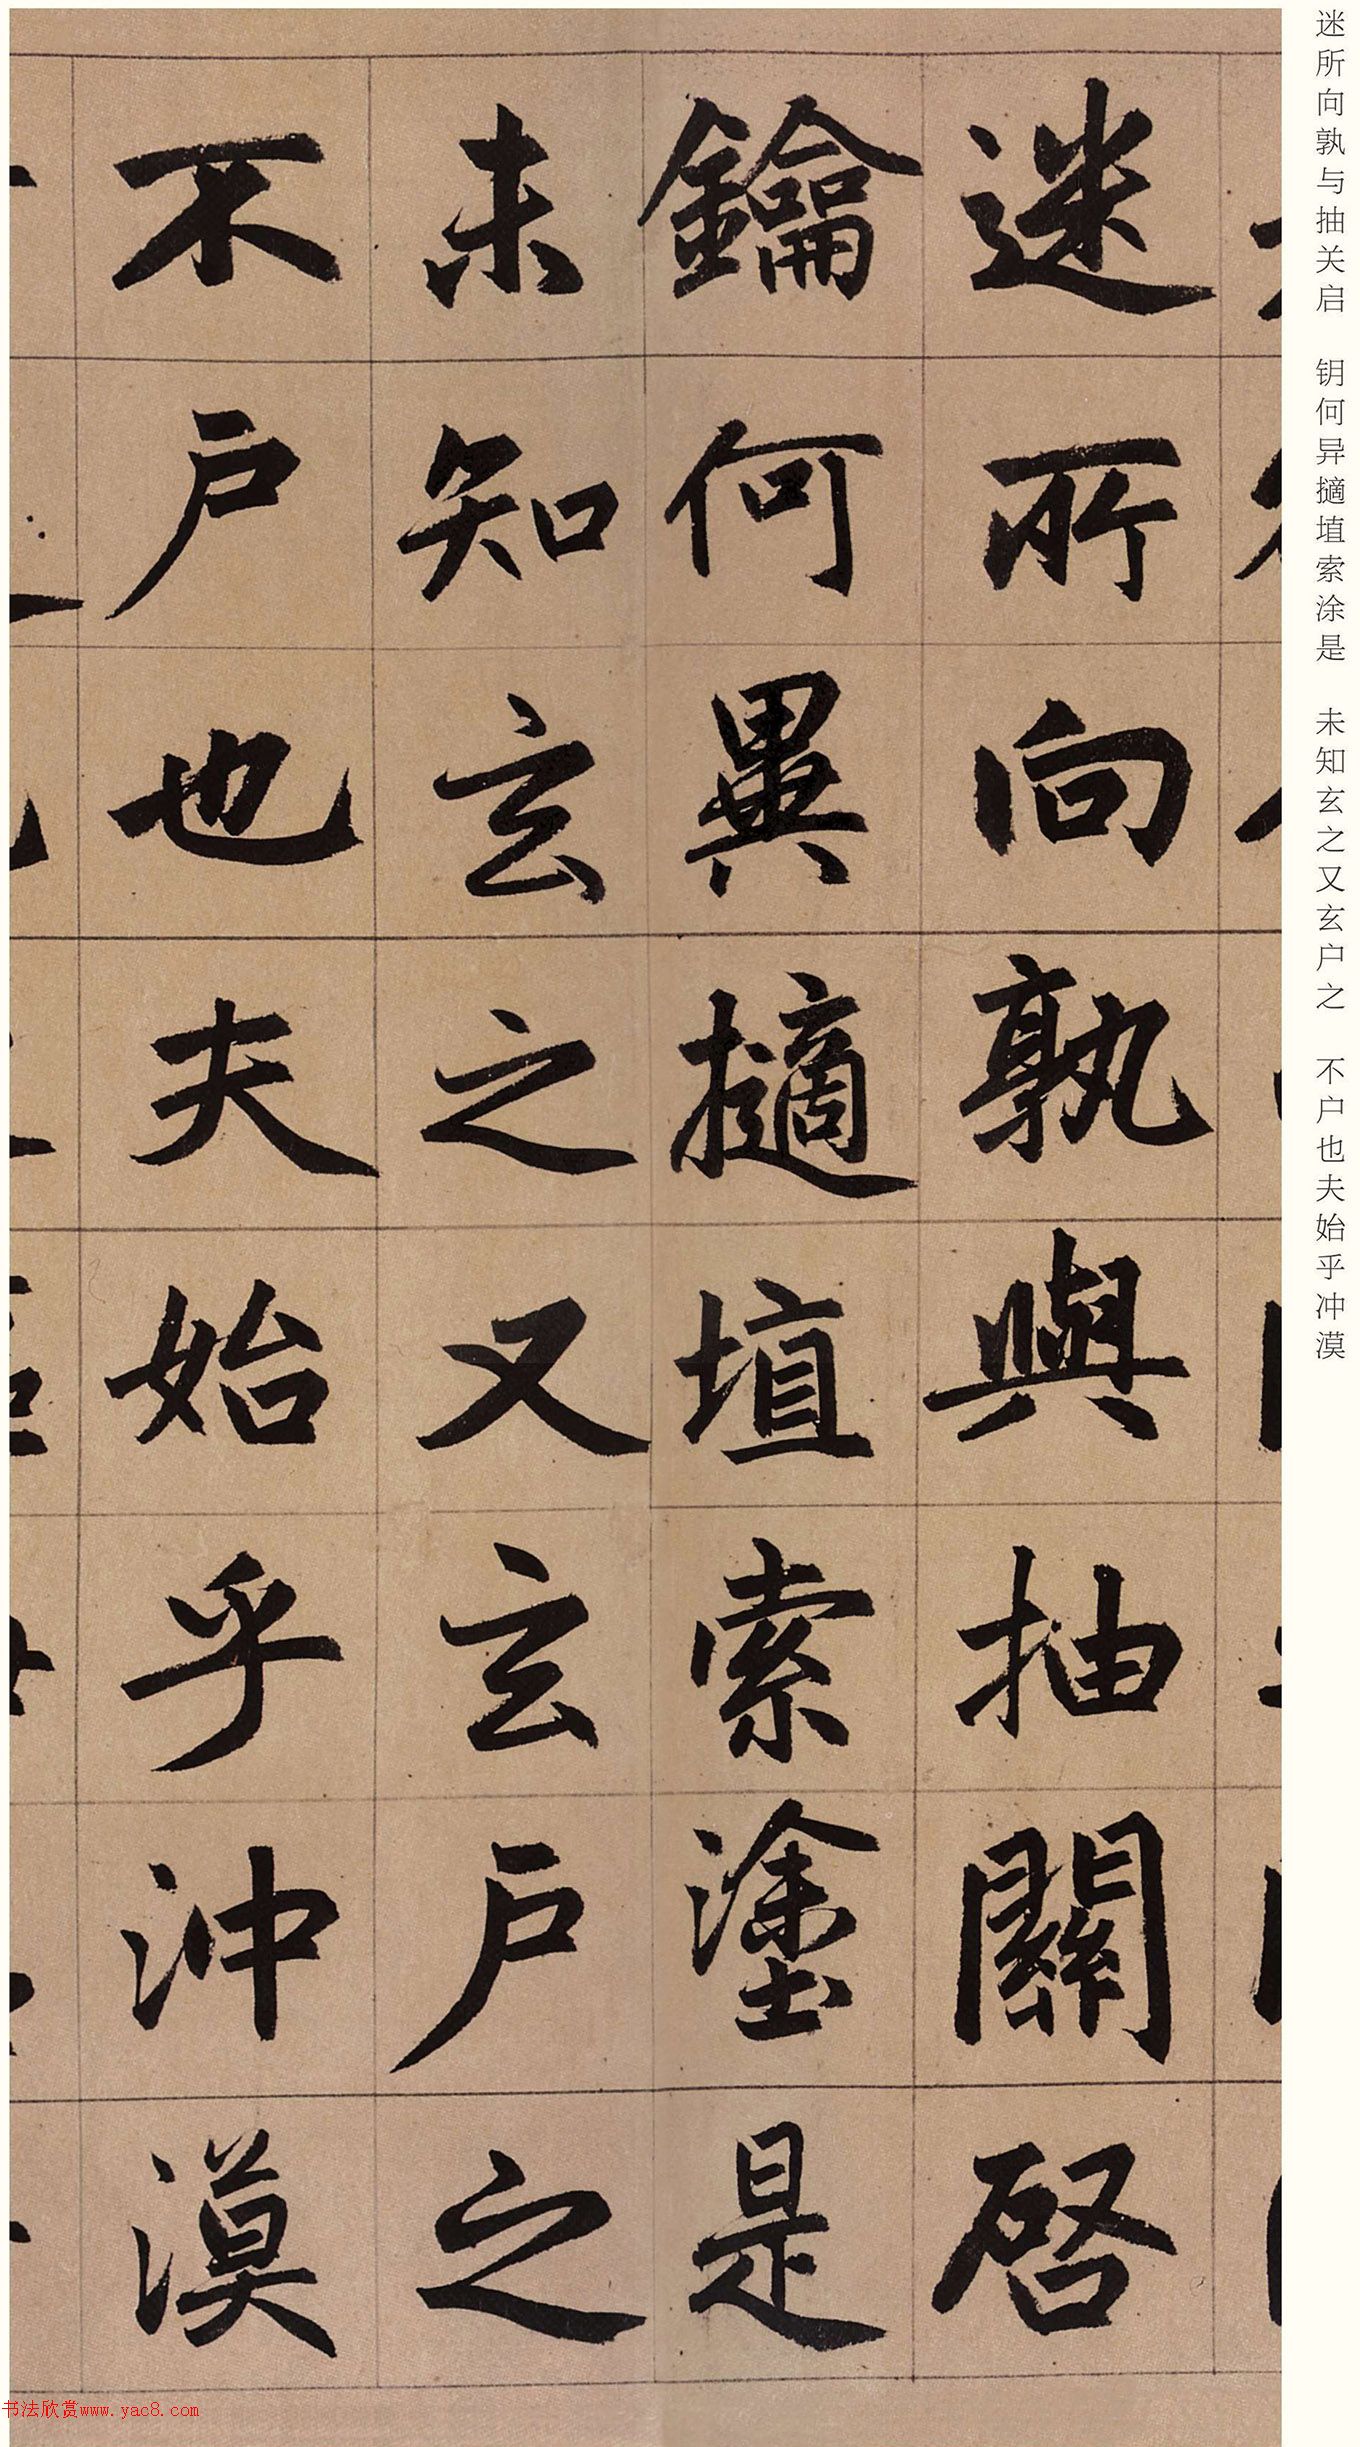 迷所向孰與抽關啓
鑰何異擿埴索塗是
未知玄之又玄户之
不户也夫始乎沖漠
迷所向孰与抽关启 钥何异擿埴索涂是 未知玄之又玄户之 不户也夫始乎冲漠
书法欣赏www.yac8.com